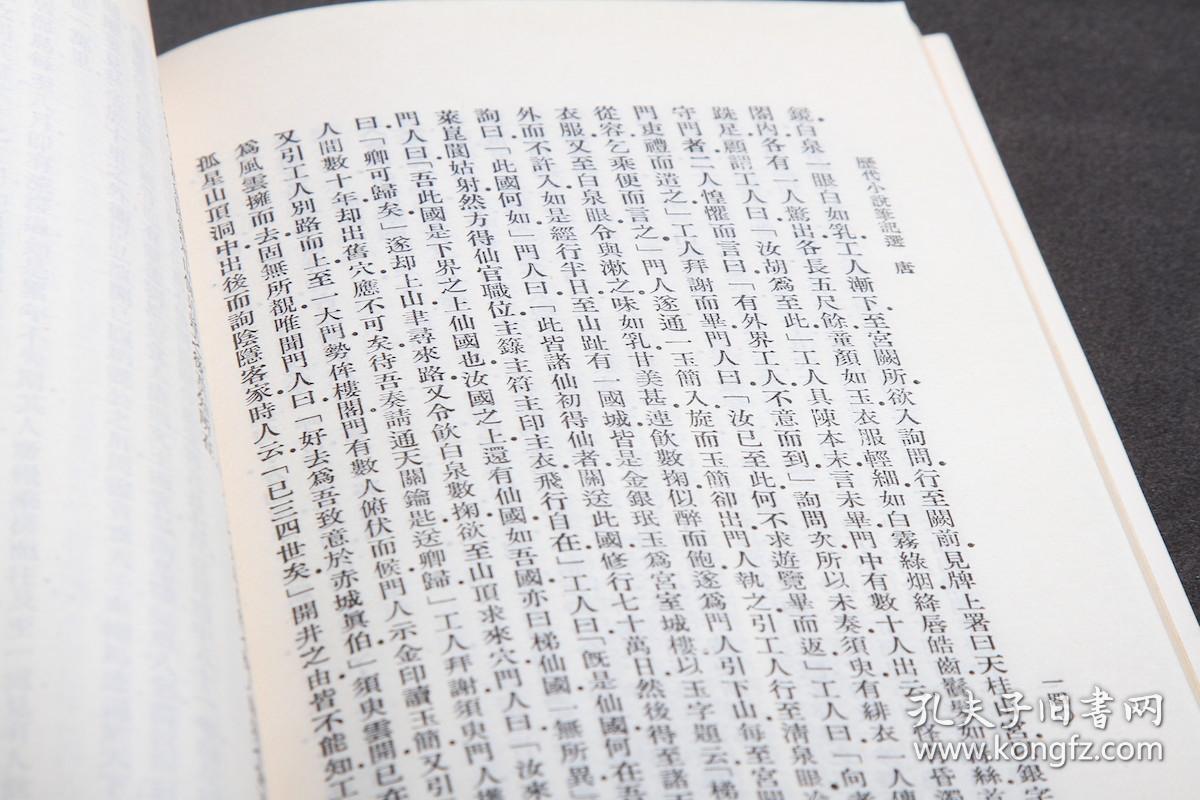 歷代小說筆記選 唐
一四
鏡白泉一眼白如乳工人漸下至宮闕所欲入詢問行至闕前見牌上署曰天桂山宮以銀字
閣內各有一人驚出各長五尺餘童顏如玉衣服輕細如白霧綠烟絳唇皓齒鬢髮如
跣足顧謂工人曰「汝胡爲至此」工人具陳本末言未畢門中有數十人出云
守門者二人惶懼而言曰「有外界工人不意而到」詢問次所以未奏須臾有緋衣一人傳
門吏禮而遣之」工人拜謝而畢門人曰「汝已至此何不求遊覽畢而返」工人曰「向者
從容乞乘便而言之」門人遂通一玉簡入旋而玉簡卻出門人執之引工人行至清泉眼
衣服又至白泉眼令與漱之味如乳甘美甚連飲數掬似醉而飽遂爲門人引下山每至宮闕
外而不許入如是經行半日至山趾有一國城皆是金銀珉玉爲宮室城樓以玉字題云「梯
詢曰「此國何如」門人曰「此皆諸仙初得仙者關送此國修行七十萬日然後得至諸
萊崑閬姑射然方得仙官職位主籙主符主印主衣飛行自在」工人曰「旣是仙國何在吾
門人曰「吾此國是下界之上仙國也汝國之上還有仙國如吾國亦曰梯仙國一無所異」
曰「卿可歸矣」遂却上山尋來路又令飲白泉數掬欲至山頂求來穴門人曰「汝來
人間數十年却出舊穴應不可矣待吾奏請通天關鑰匙送卿歸」工人拜謝須臾門人
又引工人別路而上至一大門勢侔樓閣門有數人俯伏而候門人示金印讀玉簡又引
爲風雲擁而去因無所覩唯聞門人曰「好去爲吾致意於赤城眞伯」須臾雲開已在
孤星山頂洞中出後而詢陰隱客家時人云「已三四世矣」開井之由皆不能知工
孔夫子旧书网
www.kongfz.com